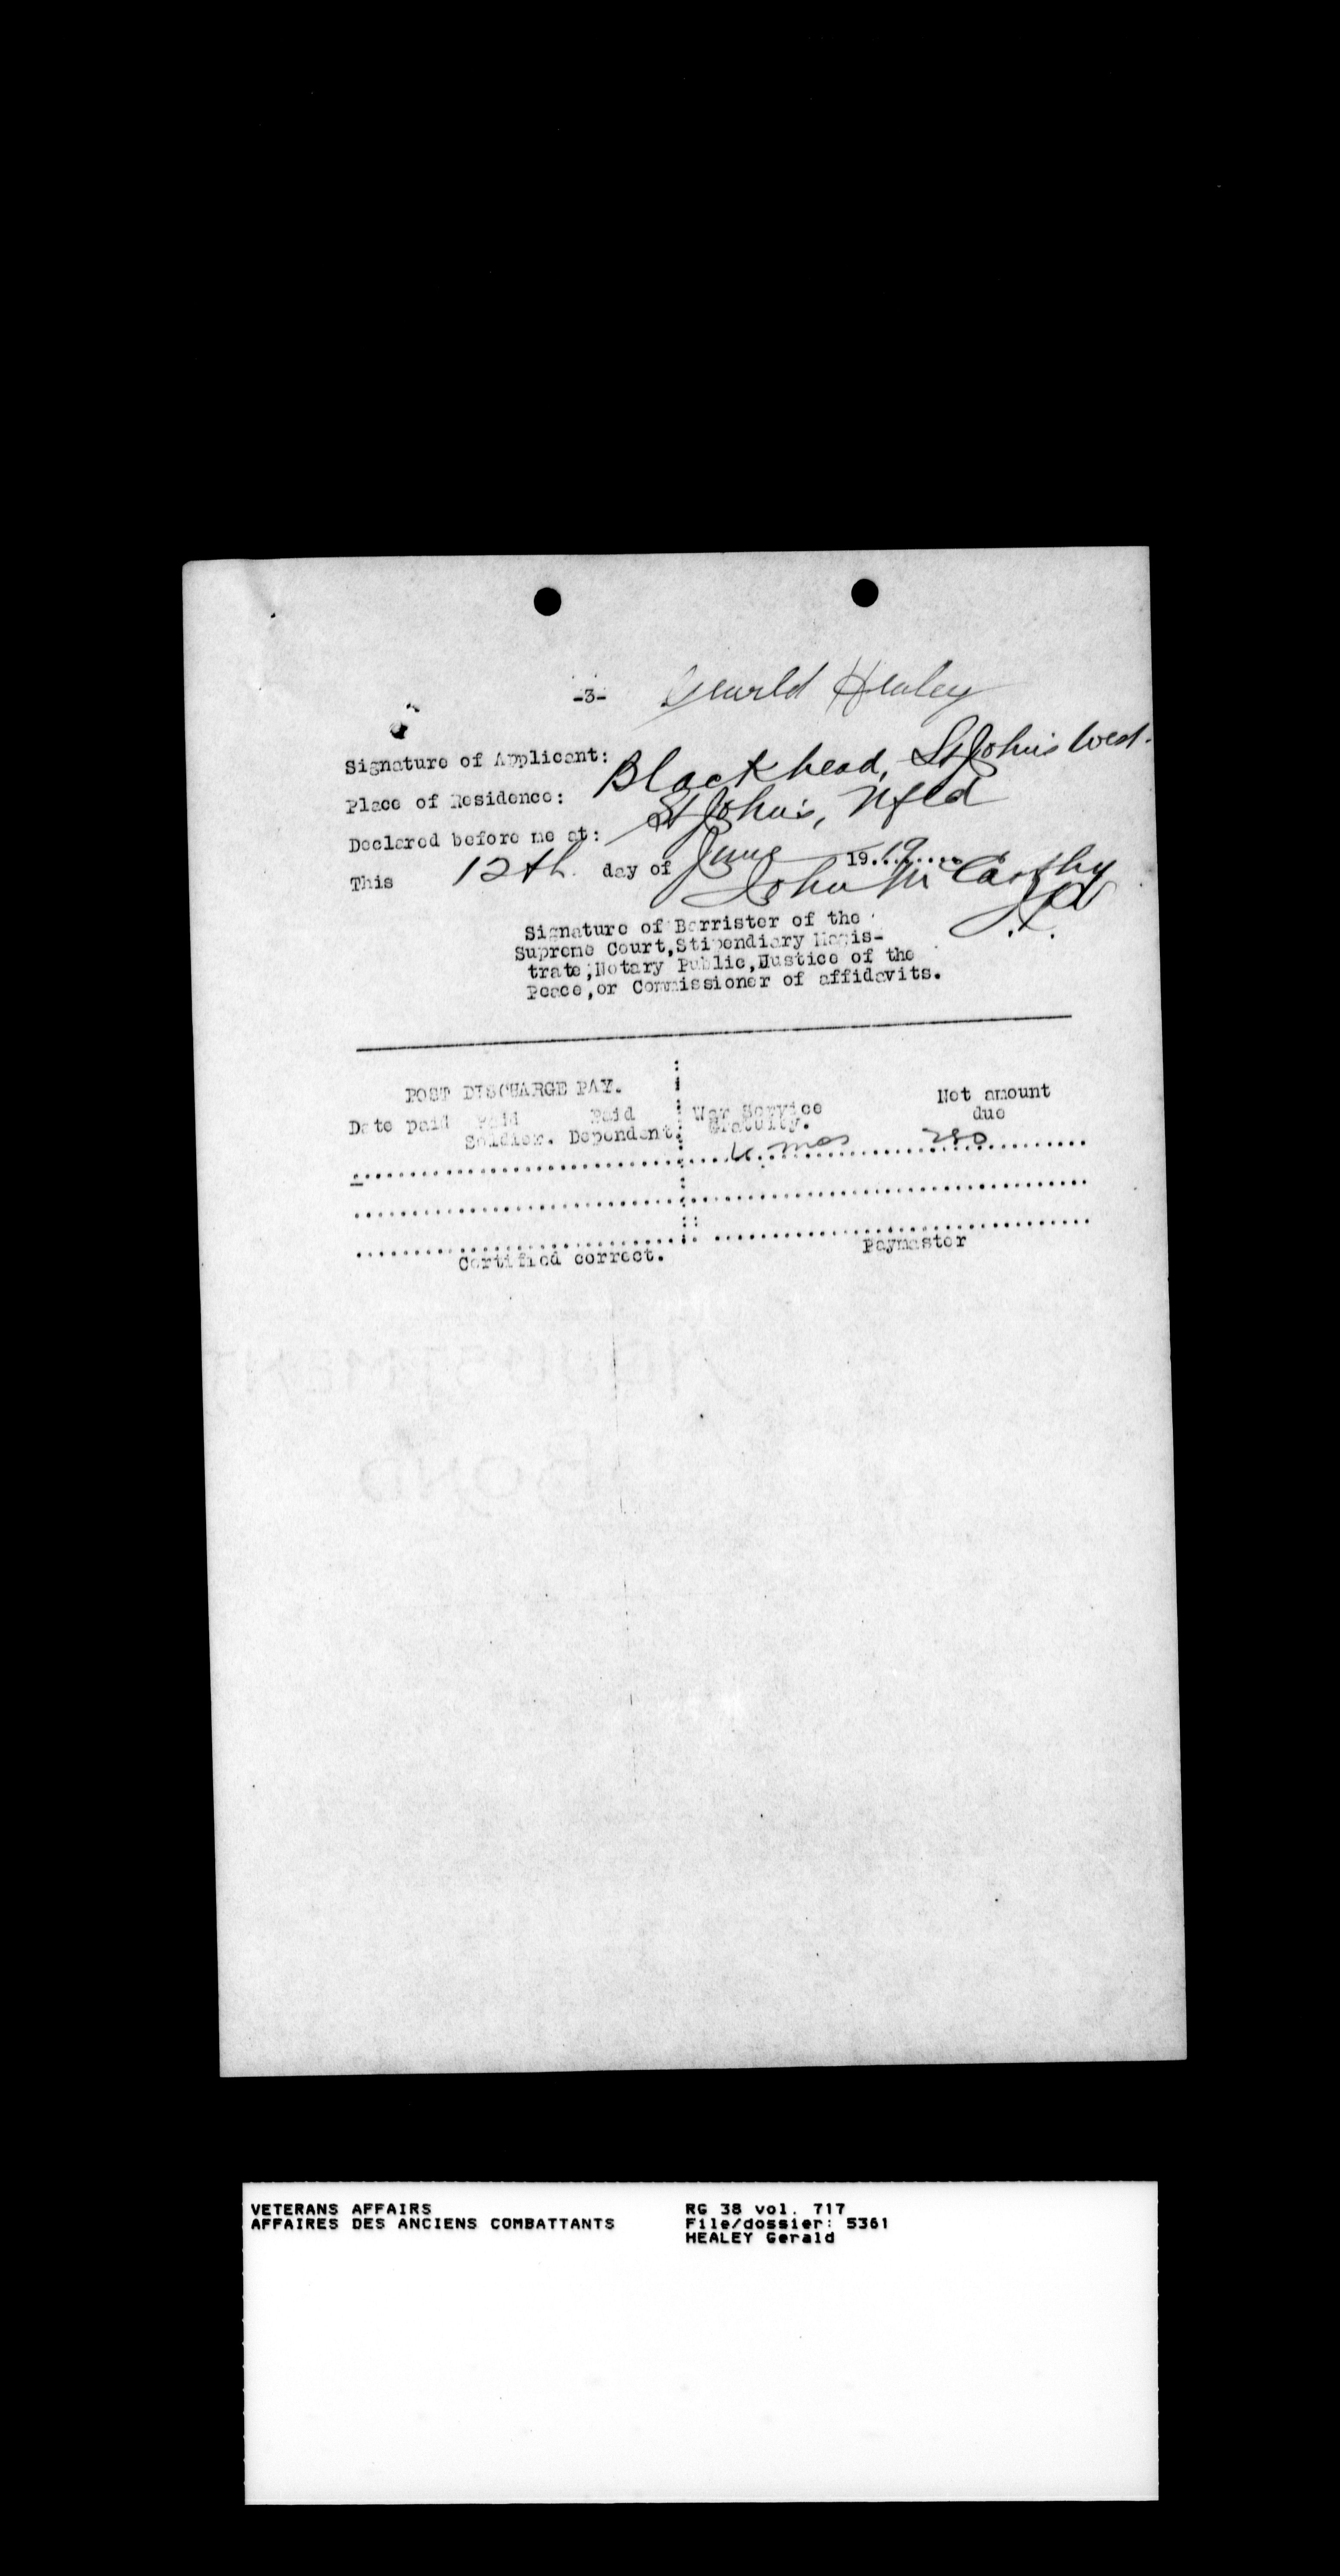 -3- Gearld Healey
Signature of Applicant:
Place of Residence: Blackhead, St John's West.
Declared before me at: St John's, Nfld
This 12th day of June 1919
John McCarthy
J.P.
Signature of Barrister of the
Supreme Court,Stipendiary Magis-
trate,Notary Public,Justice of the
Peace,or Commissioner of affidavits.
POST DISCHARGE PAY.
Date paid Paid Paid War Service Net amount
Soldier. Dependent. Gratuity. due
mos 280
Certified correct. Paymaster
BOND
VETERANS AFFAIRS RG 38 vol. 717
AFFAIRES DES ANCIENS COMBATTANTS File/dossier: 5361
HEALEY Gerald